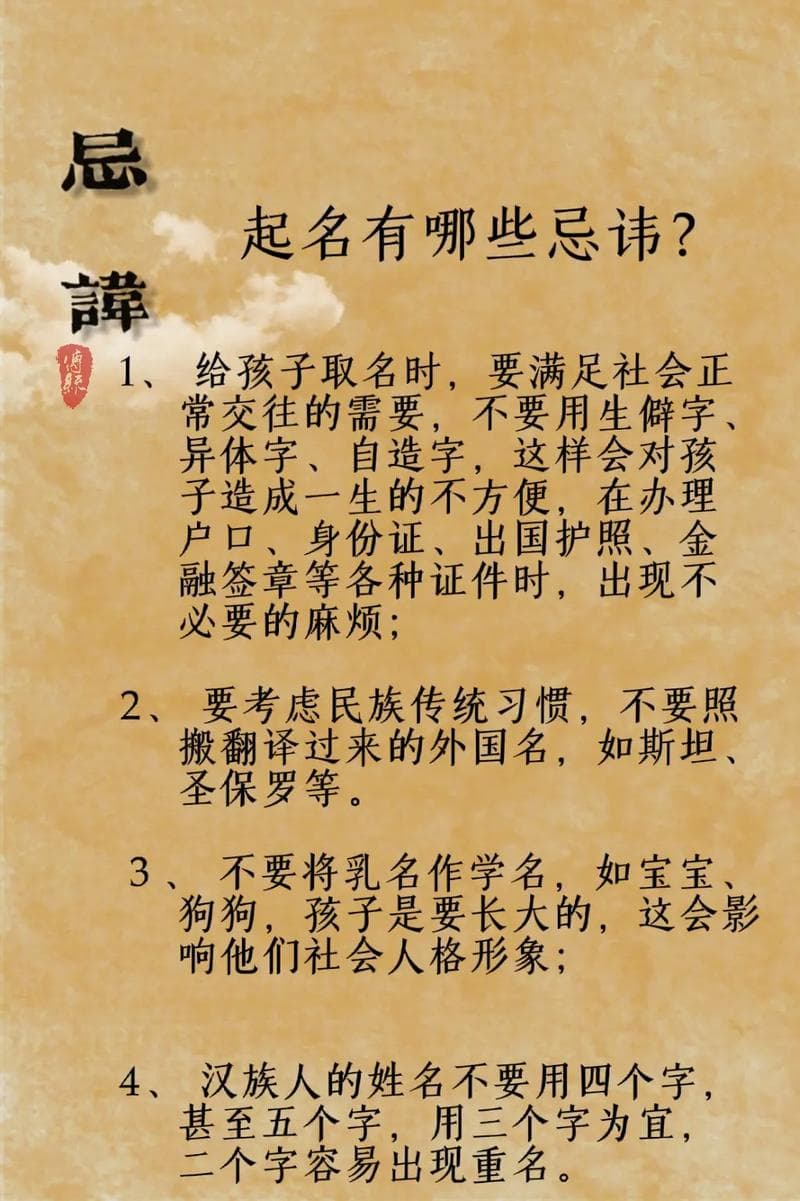 忌
諱
起名有哪些忌讳？
1、给孩子取名时，要满足社会正
常交往的需要，不要用生僻字、
异体字、自造字，这样会对孩
子造成一生的不方便，在办理
户口、身份证、出国护照、金
融签章等各种证件时，出现不
必要的麻烦；
2、要考虑民族传统习惯，不要照
搬翻译过来的外国名，如斯坦、
圣保罗等。
3、不要将乳名作学名，如宝宝、
狗狗，孩子是要长大的，这会影
响他们社会人格形象；
4、汉族人的姓名不要用四个字，
甚至五个字，用三个字为宜，
二个字容易出现重名。